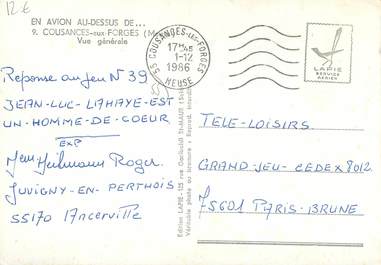 12 €
EN AVION AU-DESSUS DE...
9. COUSANCES-aux-FORGES (M
Vue générale
55 COUSANCES-LES-FORGES
17H45
1-12
1986
MEUSE
LAPIE
SERVICE
AERIEN
Réponse au Jeu N° 39
JEAN-LUC-LAHAYE-EST
UN-HOMME-DE-COEUR
EXP
Heilmann Roger
JUVIGNY-EN-PERTHOIS
55170 Ancerville
Edition LAPIE-125 rue Garibaldi St-MAUR (Sei
Véritable photo au bromure
TELE-LOISIRS.
GRAND-JEU-CEDEX 8012
75601 PARIS-BRUNE